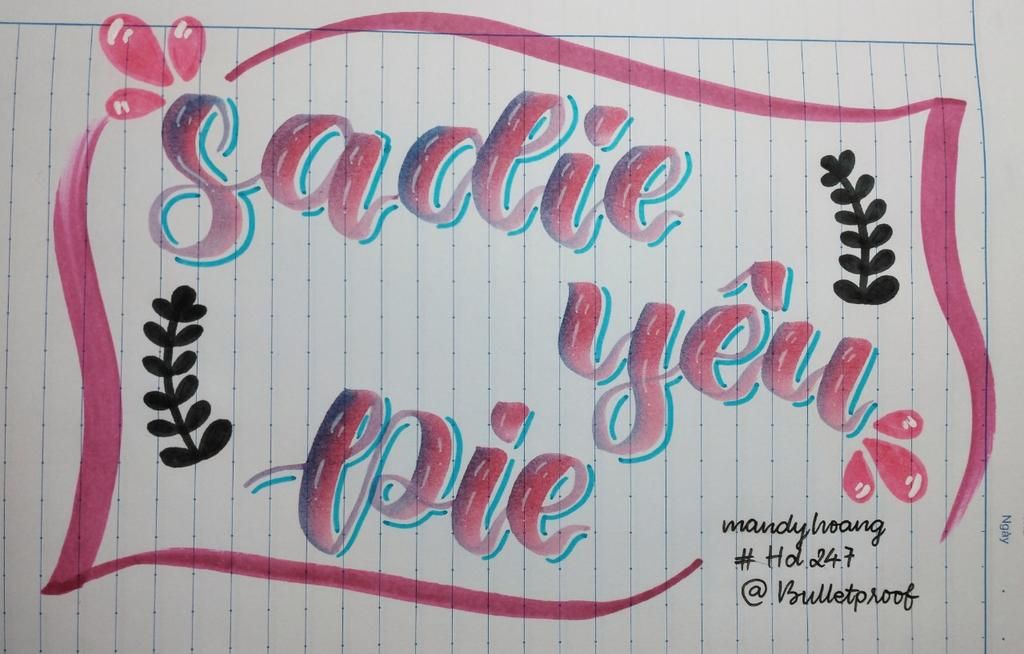 Sadie
yêu
Pie
mandyhoang
# Hd 247
@ Bulletproof
Ngày